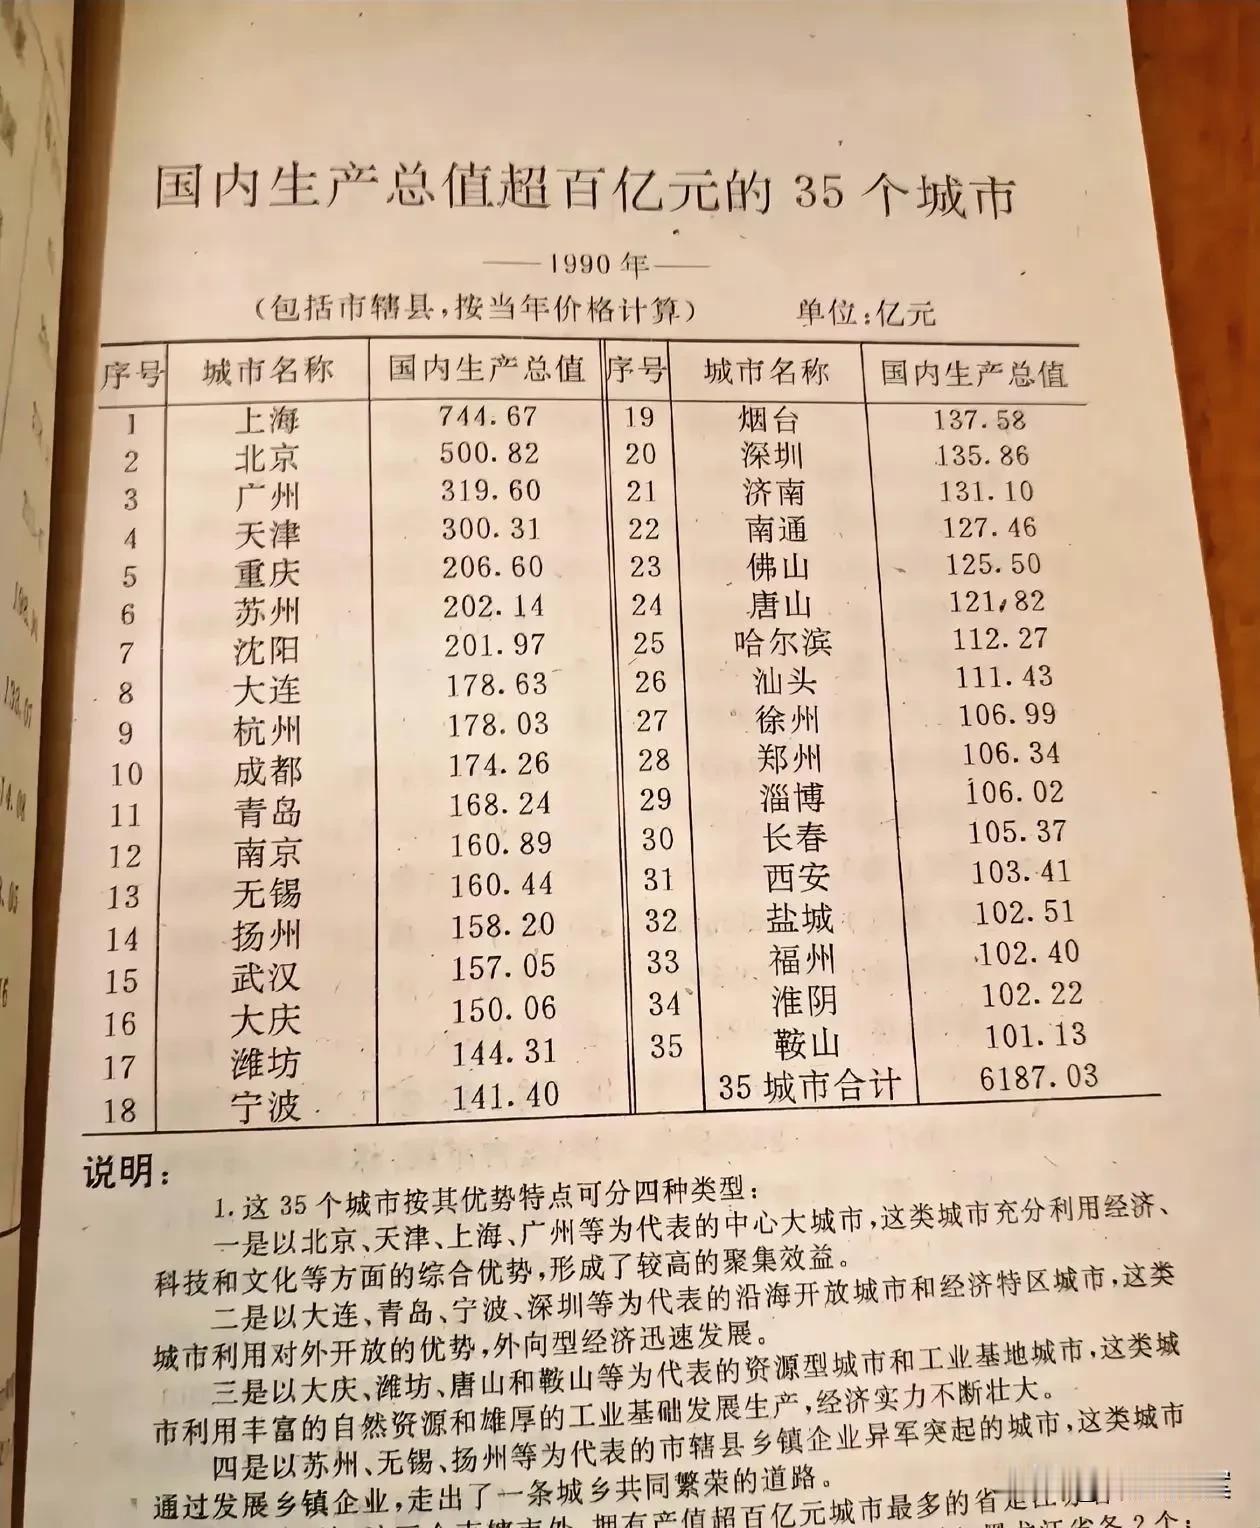 国内生产总值超百亿元的 35 个城市
——1990 年——
(包括市辖县,按当年价格计算) 单位:亿元
序号 城市名称 国内生产总值 序号 城市名称 国内生产总值
1 上海 744.67 19 烟台 137.58
2 北京 500.82 20 深圳 135.86
3 广州 319.60 21 济南 131.10
4 天津 300.31 22 南通 127.46
5 重庆 206.60 23 佛山 125.50
6 苏州 202.14 24 唐山 121.82
7 沈阳 201.97 25 哈尔滨 112.27
8 大连 178.63 26 汕头 111.43
9 杭州 178.03 27 徐州 106.99
10 成都 174.26 28 郑州 106.34
11 青岛 168.24 29 淄博 106.02
12 南京 160.89 30 长春 105.37
13 无锡 160.44 31 西安 103.41
14 扬州 158.20 32 盐城 102.51
15 武汉 157.05 33 福州 102.40
16 大庆 150.06 34 淮阴 102.22
17 潍坊 144.31 35 鞍山 101.13
18 宁波 141.40 35 城市合计 6187.03
说明:
1.这 35 个城市按其优势特点可分四种类型:
一是以北京、天津、上海、广州等为代表的中心大城市,这类城市充分利用经济、
科技和文化等方面的综合优势,形成了较高的聚集效益。
二是以大连、青岛、宁波、深圳等为代表的沿海开放城市和经济特区城市,这类
城市利用对外开放的优势,外向型经济迅速发展。
三是以大庆、潍坊、唐山和鞍山等为代表的资源型城市和工业基地城市,这类城
市利用丰富的自然资源和雄厚的工业基础发展生产,经济实力不断壮大。
四是以苏州、无锡、扬州等为代表的市辖县乡镇企业异军突起的城市,这类城市
通过发展乡镇企业,走出了一条城乡共同繁荣的道路。
个直辖市外,拥有产值超百亿元城市最多的省是江苏省
黑龙江省各 2 个;